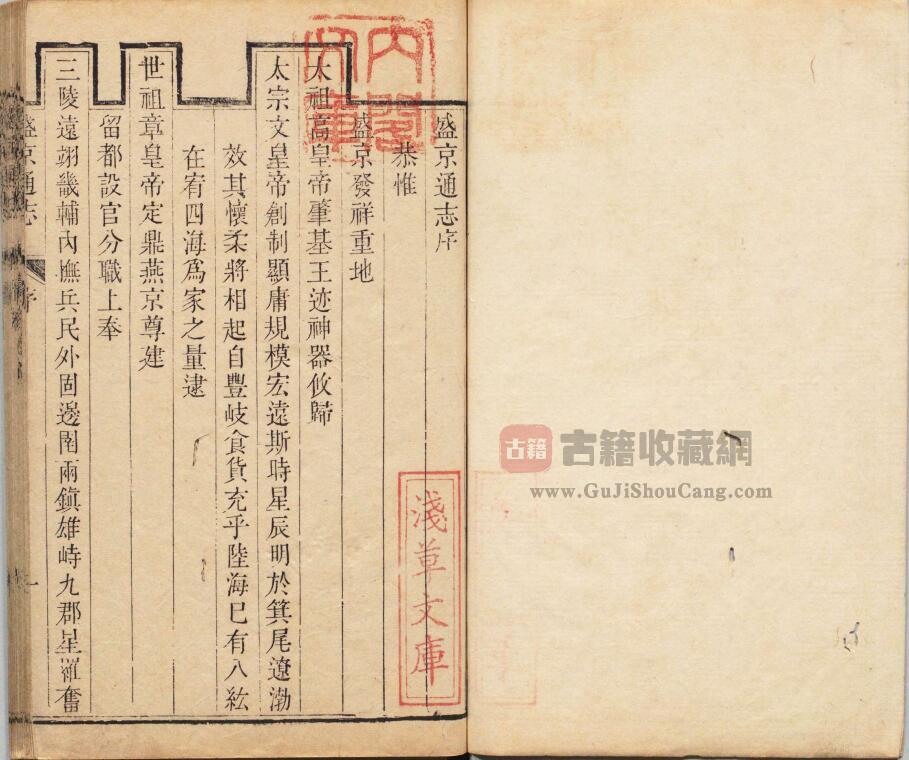 盛京通志序
恭惟
盛京發祥重地
太祖高皇帝肇基王迹神器攸歸
太宗文皇帝創制顯庸規模宏遠斯時星辰明於箕尾遼渤
效其懷柔將相起自豐岐食貨充乎陸海已有八紘
在宥四海爲家之量逮
世祖章皇帝定鼎燕京尊建
留都設官分職上奉
三陵遠翊畿輔內撫兵民外固邊圉兩鎭雄峙九郡星羅奮
盛京通志
序
一
內閣文庫
淺草文庫
古籍
古籍收藏網
www.GuJiShouCang.com